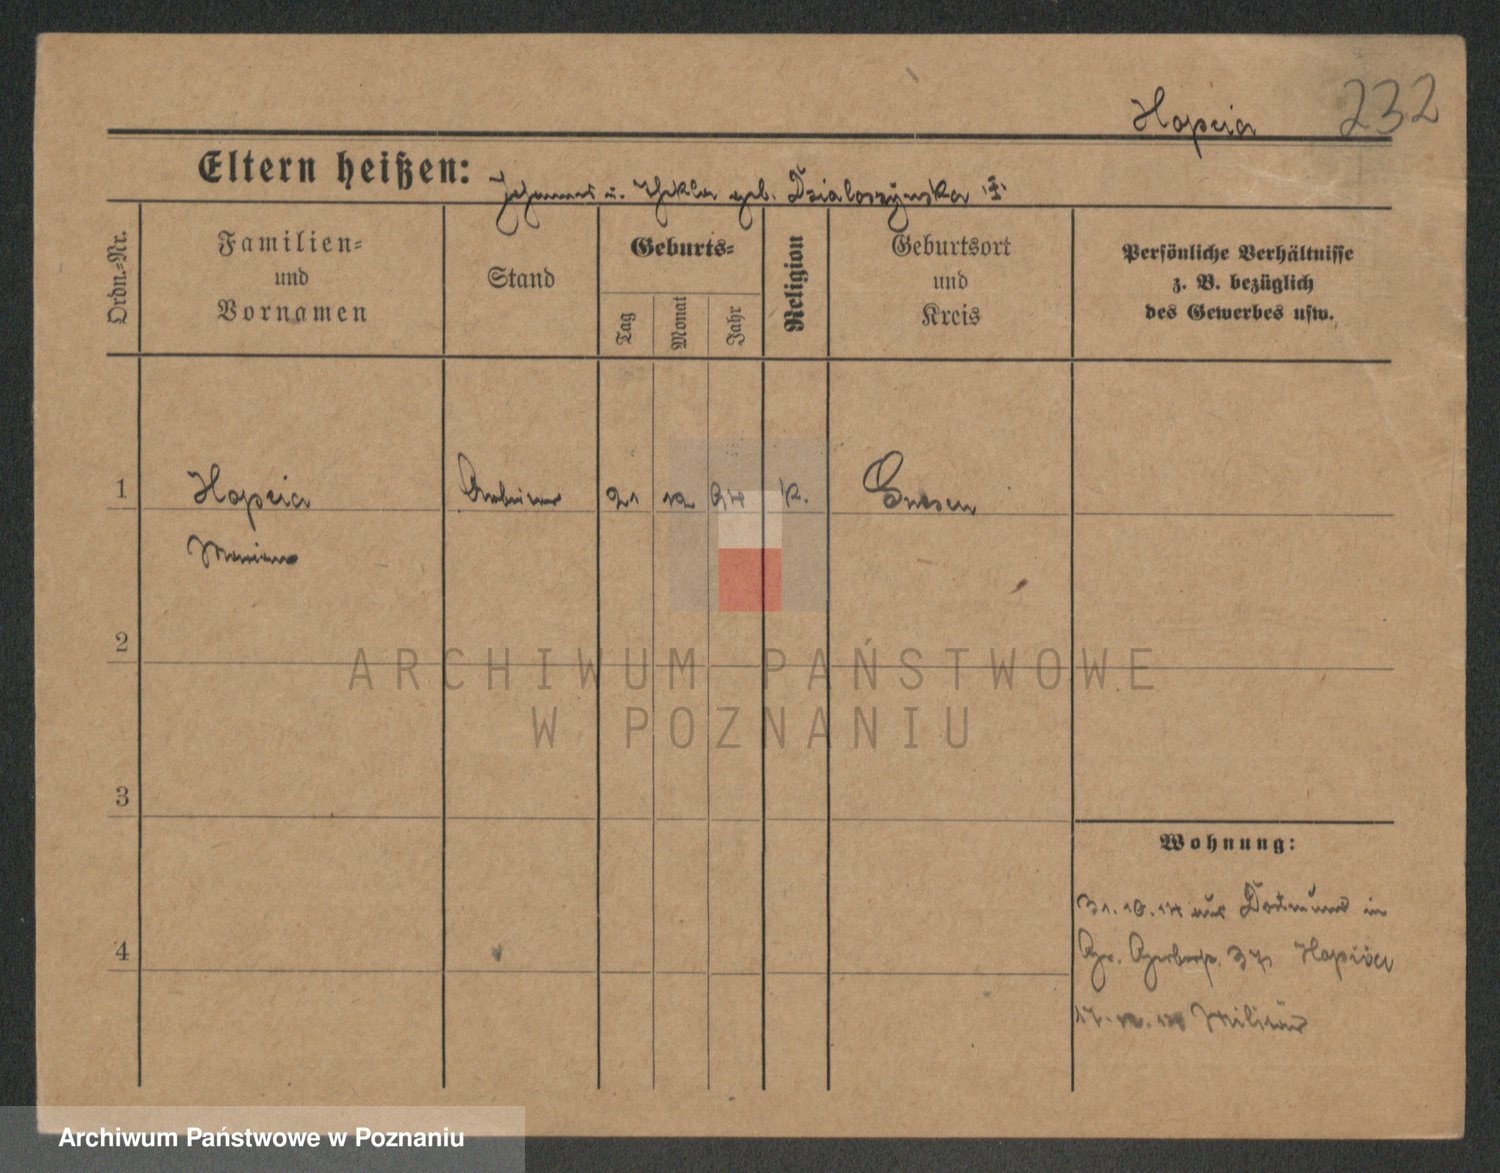 Hapcia 232
Eltern heißen: Johannes u. Thekla geb. Dzialoszynska
Ordn.-Nr.
Familien-
und
Vornamen
Stand
Geburts-
Tag
Monat
Jahr
Religion
Geburtsort
und
Kreis
Persönliche Verhältnisse
z. B. bezüglich
des Gewerbes usw.
1 Hapcia Arbeiter 21 12 94 k. Gnesen
Marian
2
ARCHIWUM PAŃSTWOWE
W POZNANIU
3
Wohnung:
31.10.14 aus Dortmund in
Gr. Gerberstr. 37, Hapcia
4
Militär
Archiwum Państwowe w Poznaniu